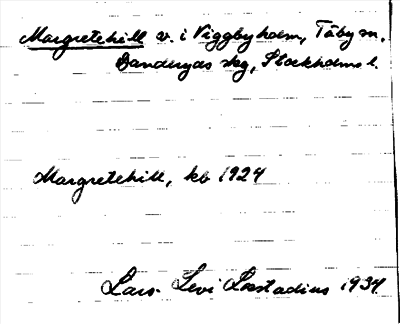 Margretehill v. i Viggbyholm, Täby sn,
Danderyds skg, Stockholms l.
Margretehill, kb 1924
Lars Levi Læstadius 1934